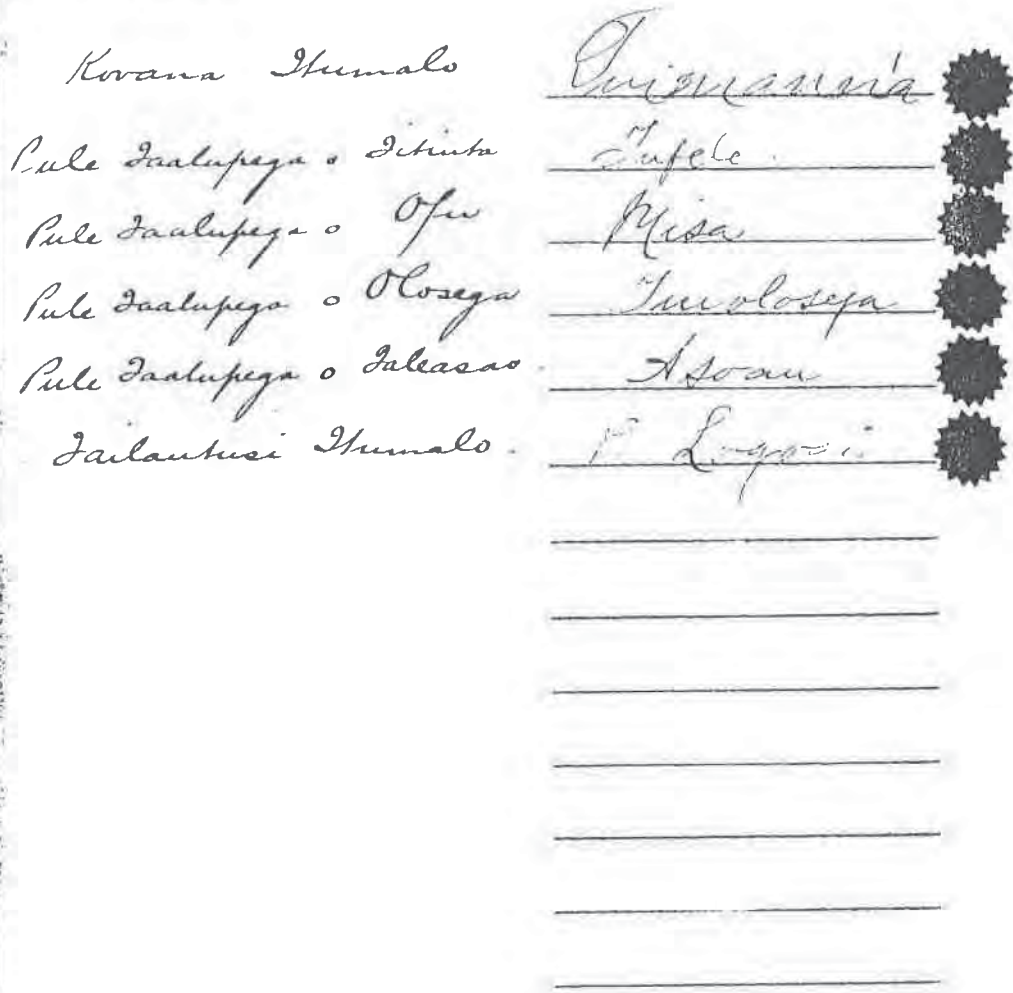 Kovana Itumalo Tuimanua
Pule Faalupega o Fitiuta Tufele.
Pule Faalupega o Ofu Misa
Pule Faalupega o Olosega Tuiolosega
Pule Faalupega o Faleasao. Asoau
Failautusi Itumalo.